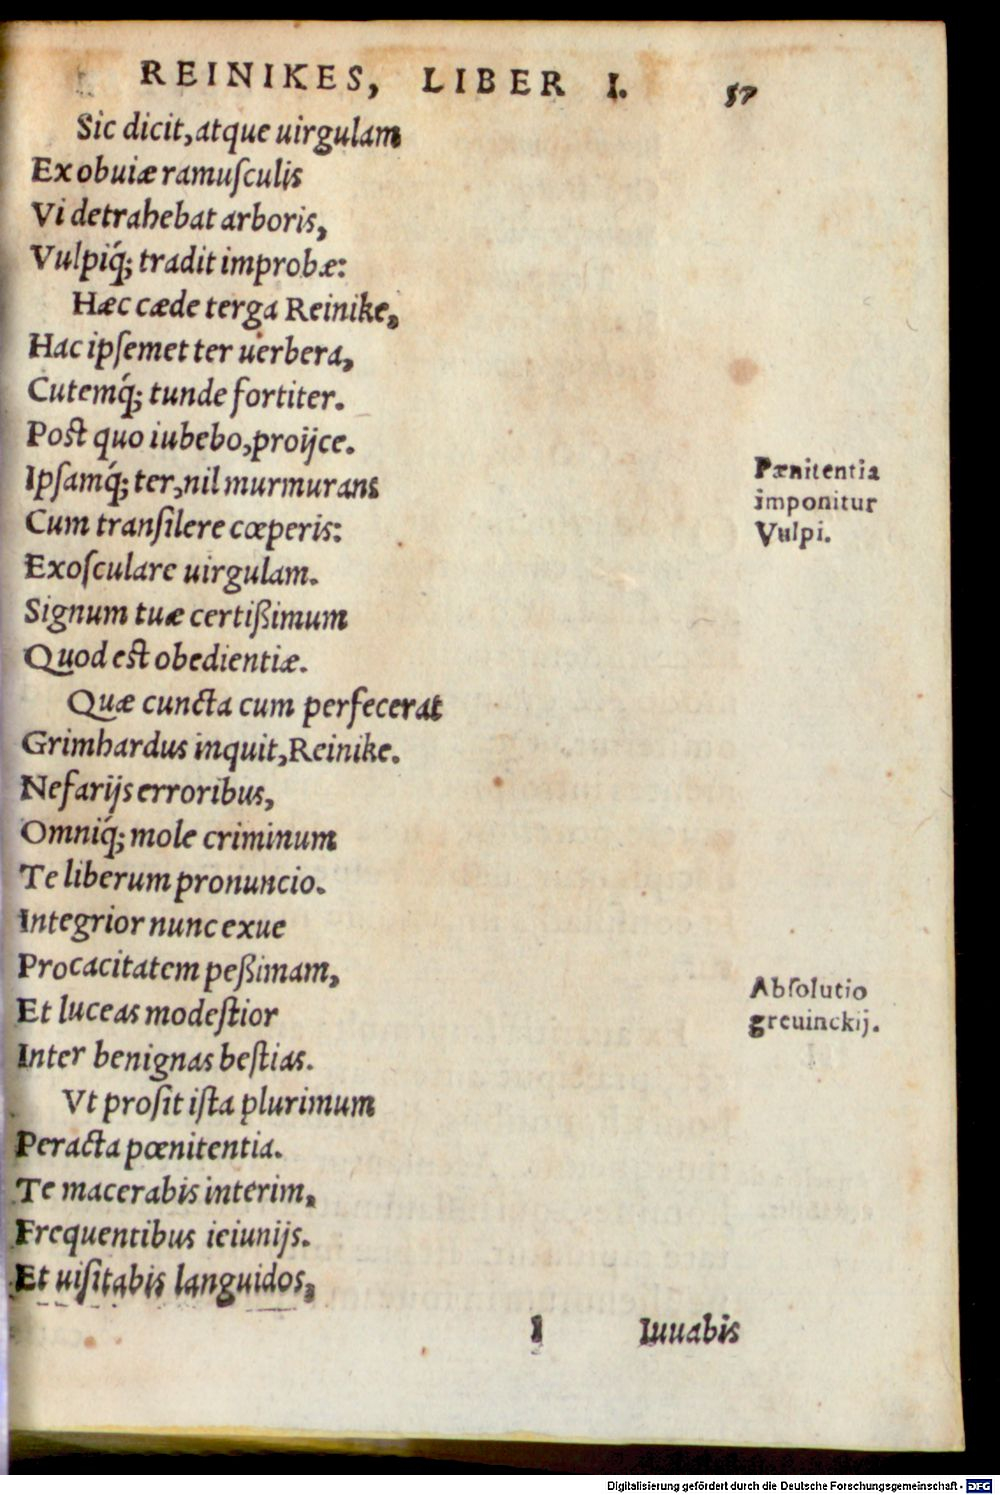 REINIKES, LIBER I. 57
Sic dicit, atque uirgulam
Ex obuiæ ramuſculis
Vi detrahebat arboris,
Vulpiq́; tradit improbæ:
Hæc cæde terga Reinike,
Hac ipſemet ter uerbera,
Cutemq́; tunde fortiter.
Poſt quo iubebo, proijce.
Ipſamq́; ter, nil murmurans
Cum tranſilere cœperis:
Exoſculare uirgulam.
Signum tuæ certißimum
Quod eſt obedientiæ.
Quæ cuncta cum perfecerat
Grimhardus inquit, Reinike.
Nefarijs erroribus,
Omniq́; mole criminum
Te liberum pronuncio.
Integrior nunc exue
Procacitatem peßimam,
Et luceas modeſtior
Inter benignas beſtias.
Vt proſit iſta plurimum
Peracta pœnitentia.
Te macerabis interim,
Frequentibus ieiunijs.
Et uiſitabis languidos,
I Iuuabis
Pænitentia
imponitur
Vulpi.
Abſolutio
greuinckij.
Digitalisierung gefördert durch die Deutsche Forschungsgemeinschaft - DFG